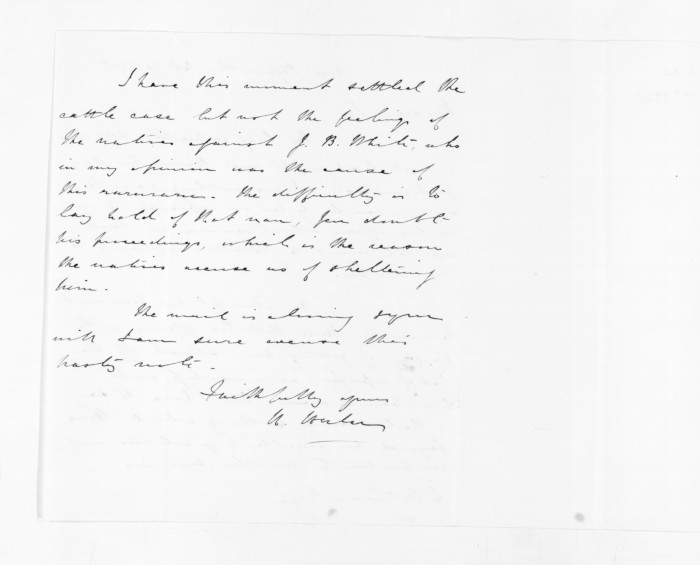 I have this moment settled the
cattle case but not the feelings of
the natives against J. B. White, who
in my opinion was the cause of
this. The difficulty is to
lay hold of that man, for doubt
his proceedings, which is the reason
the natives accuse us of sheltering
him.
The mail is closing & you
will I am sure excuse this
hasty note.
Faithfully yours